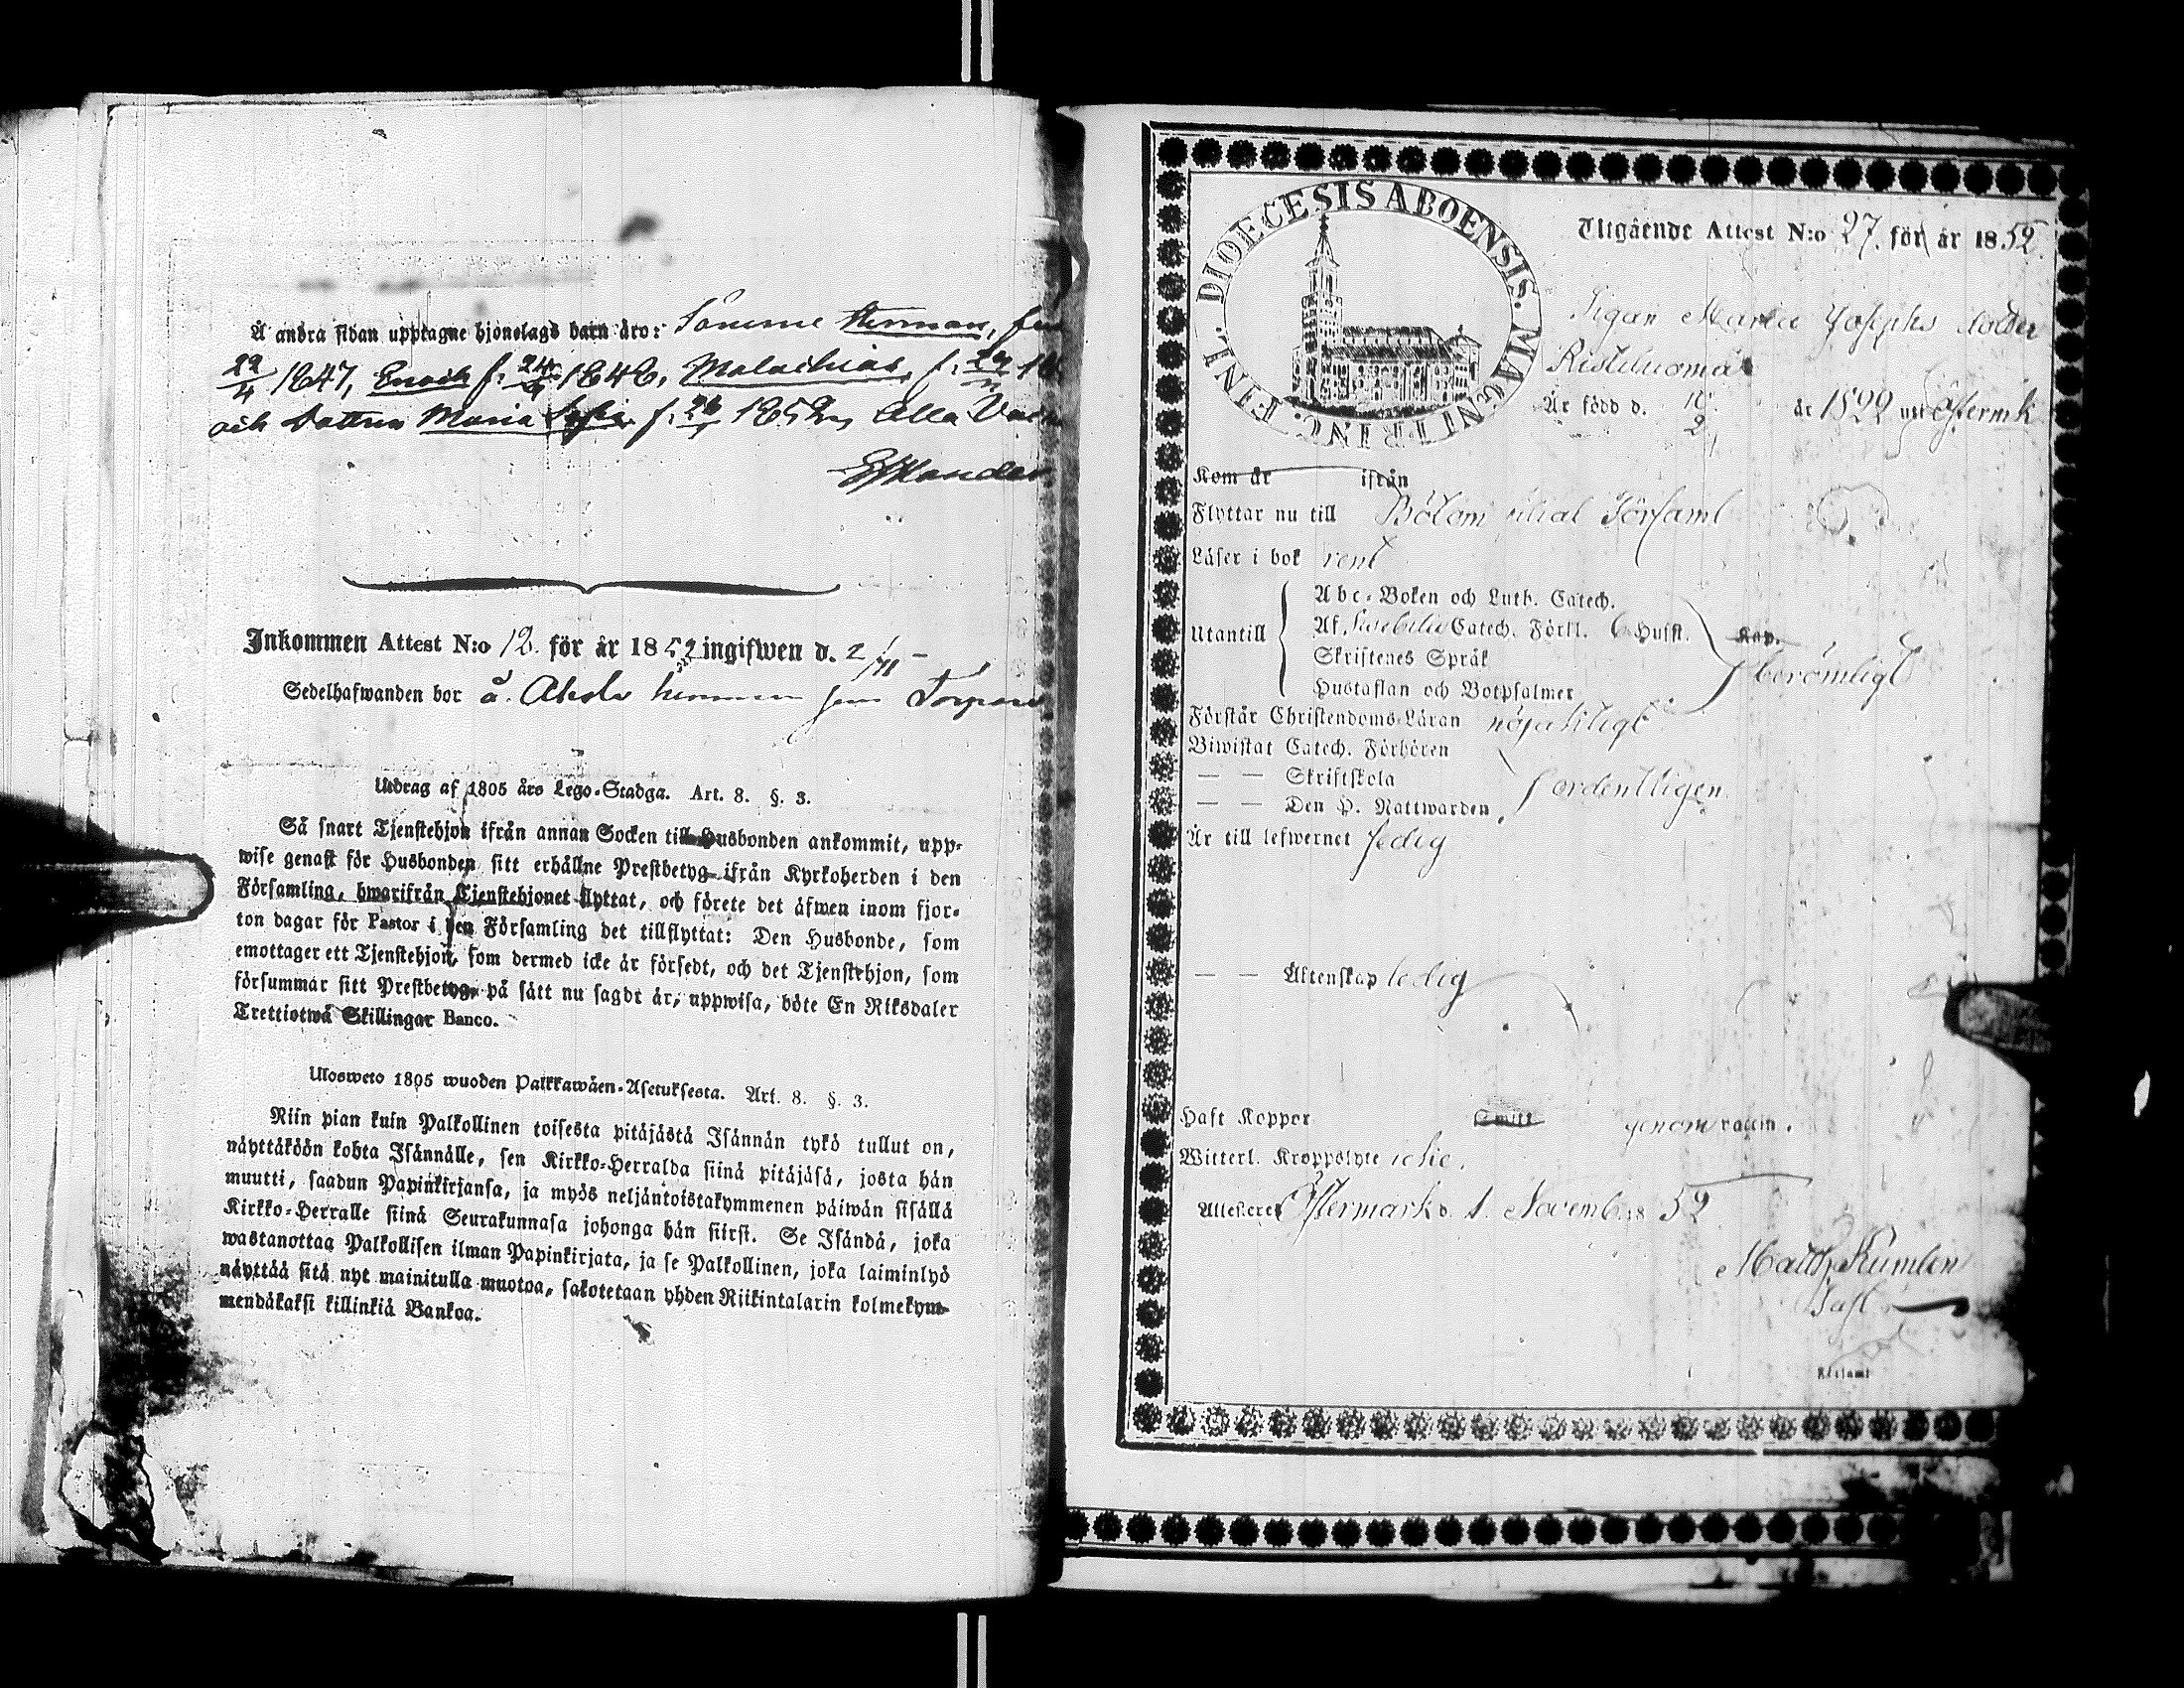 Å andra sidan upptagne hjonelags barn äro: Sönerne Herman, fed
22/4 1847, Enoch f. 24/9 1848, Malachias, f.
och dottren Maria Sofia f. 26 1852, Alla
Inkommen Attest N:o 12. för år 1852 ingifwen d. 2/11
Sedelhafwanden bor å. hemman som Torpare
Utdrag af 1805 års Lego-Stadga. Art. 8. §. 3.
Så snart Tjenstehjon ifrån annan Socken till Husbonden ankommit, upp-
wise genast för Husbonden sitt erhållne Prestbetyg ifrån Kyrkoherden i den
Församling, hwarifrån Tjenstehjonet flyttat, och förete det äfwen inom fjor-
ton dagar för Pastor i den Församling det tillflyttat: Den Husbonde, som
emottager ett Tjenstehjon, som dermed icke är försedt, och det Tjenstehjon, som
försummar sitt Prestbetyg, på sätt nu sagdt är, uppwisa, böte En Riksdaler
Trettiotwå Skillingar Banco.
Ulosweto 1805 wuoden Palkkawäen-Asetuksesta. Art. 8. §. 3.
Niin pian kuin Palkollinen toisesta pitäjästä Isännän tykö tullut on,
näyttäköön kohta Isännälle, sen Kirkko-Herralda siinä pitäjäsä, josta hän
muutti, saadun Papinkirjansa, ja myös neljäntoistakymmenen päiwän sisällä
Kirkko-Herralle siinä Seurakunnasa johonga hän siirsi. Se Isändä, joka
wastanottaa Palkollisen ilman Papinkirjata, ja se Palkollinen, joka laiminlyö
näyttää sitä nyt mainitulla muotoa, sakotetaan yhden Riikintalarin kolmekym-
mendäkaksi killinkiä Bankoa.
DIOECESIS ABOENSIS. MAGNI PRINC. FINL.
Utgående Attest N:o 27. för år 1852.
Pigan Maria Josephs dotter
Ristiluoma
Är född d. 10/2 år 1822 uti Östermk
Kom år ifrån
Flyttar nu till Bötom filial Församl
Läser i bok rent
Utantill
Abc-Boken och Luth. Catech.
Af. Swebilii Catech. Förkl. 6 Husst. Kap.
Skriftenes Språk
Hustaflan och Botpsalmer
berömligt
Förstår Christendoms-Läran nöjaktligt
Biwistat Catech. Förhören
— — Skriftskola
— — Den H. Nattwarden
ordentligen
Är till lefwernet ledig
— — Äktenskap ledig
Haft Koppor genom naturn.
Witterl. Kroppslyte icke.
Attesteres Östermark d. 1. Novemb. 1852
Matth. Kumlen
Past.